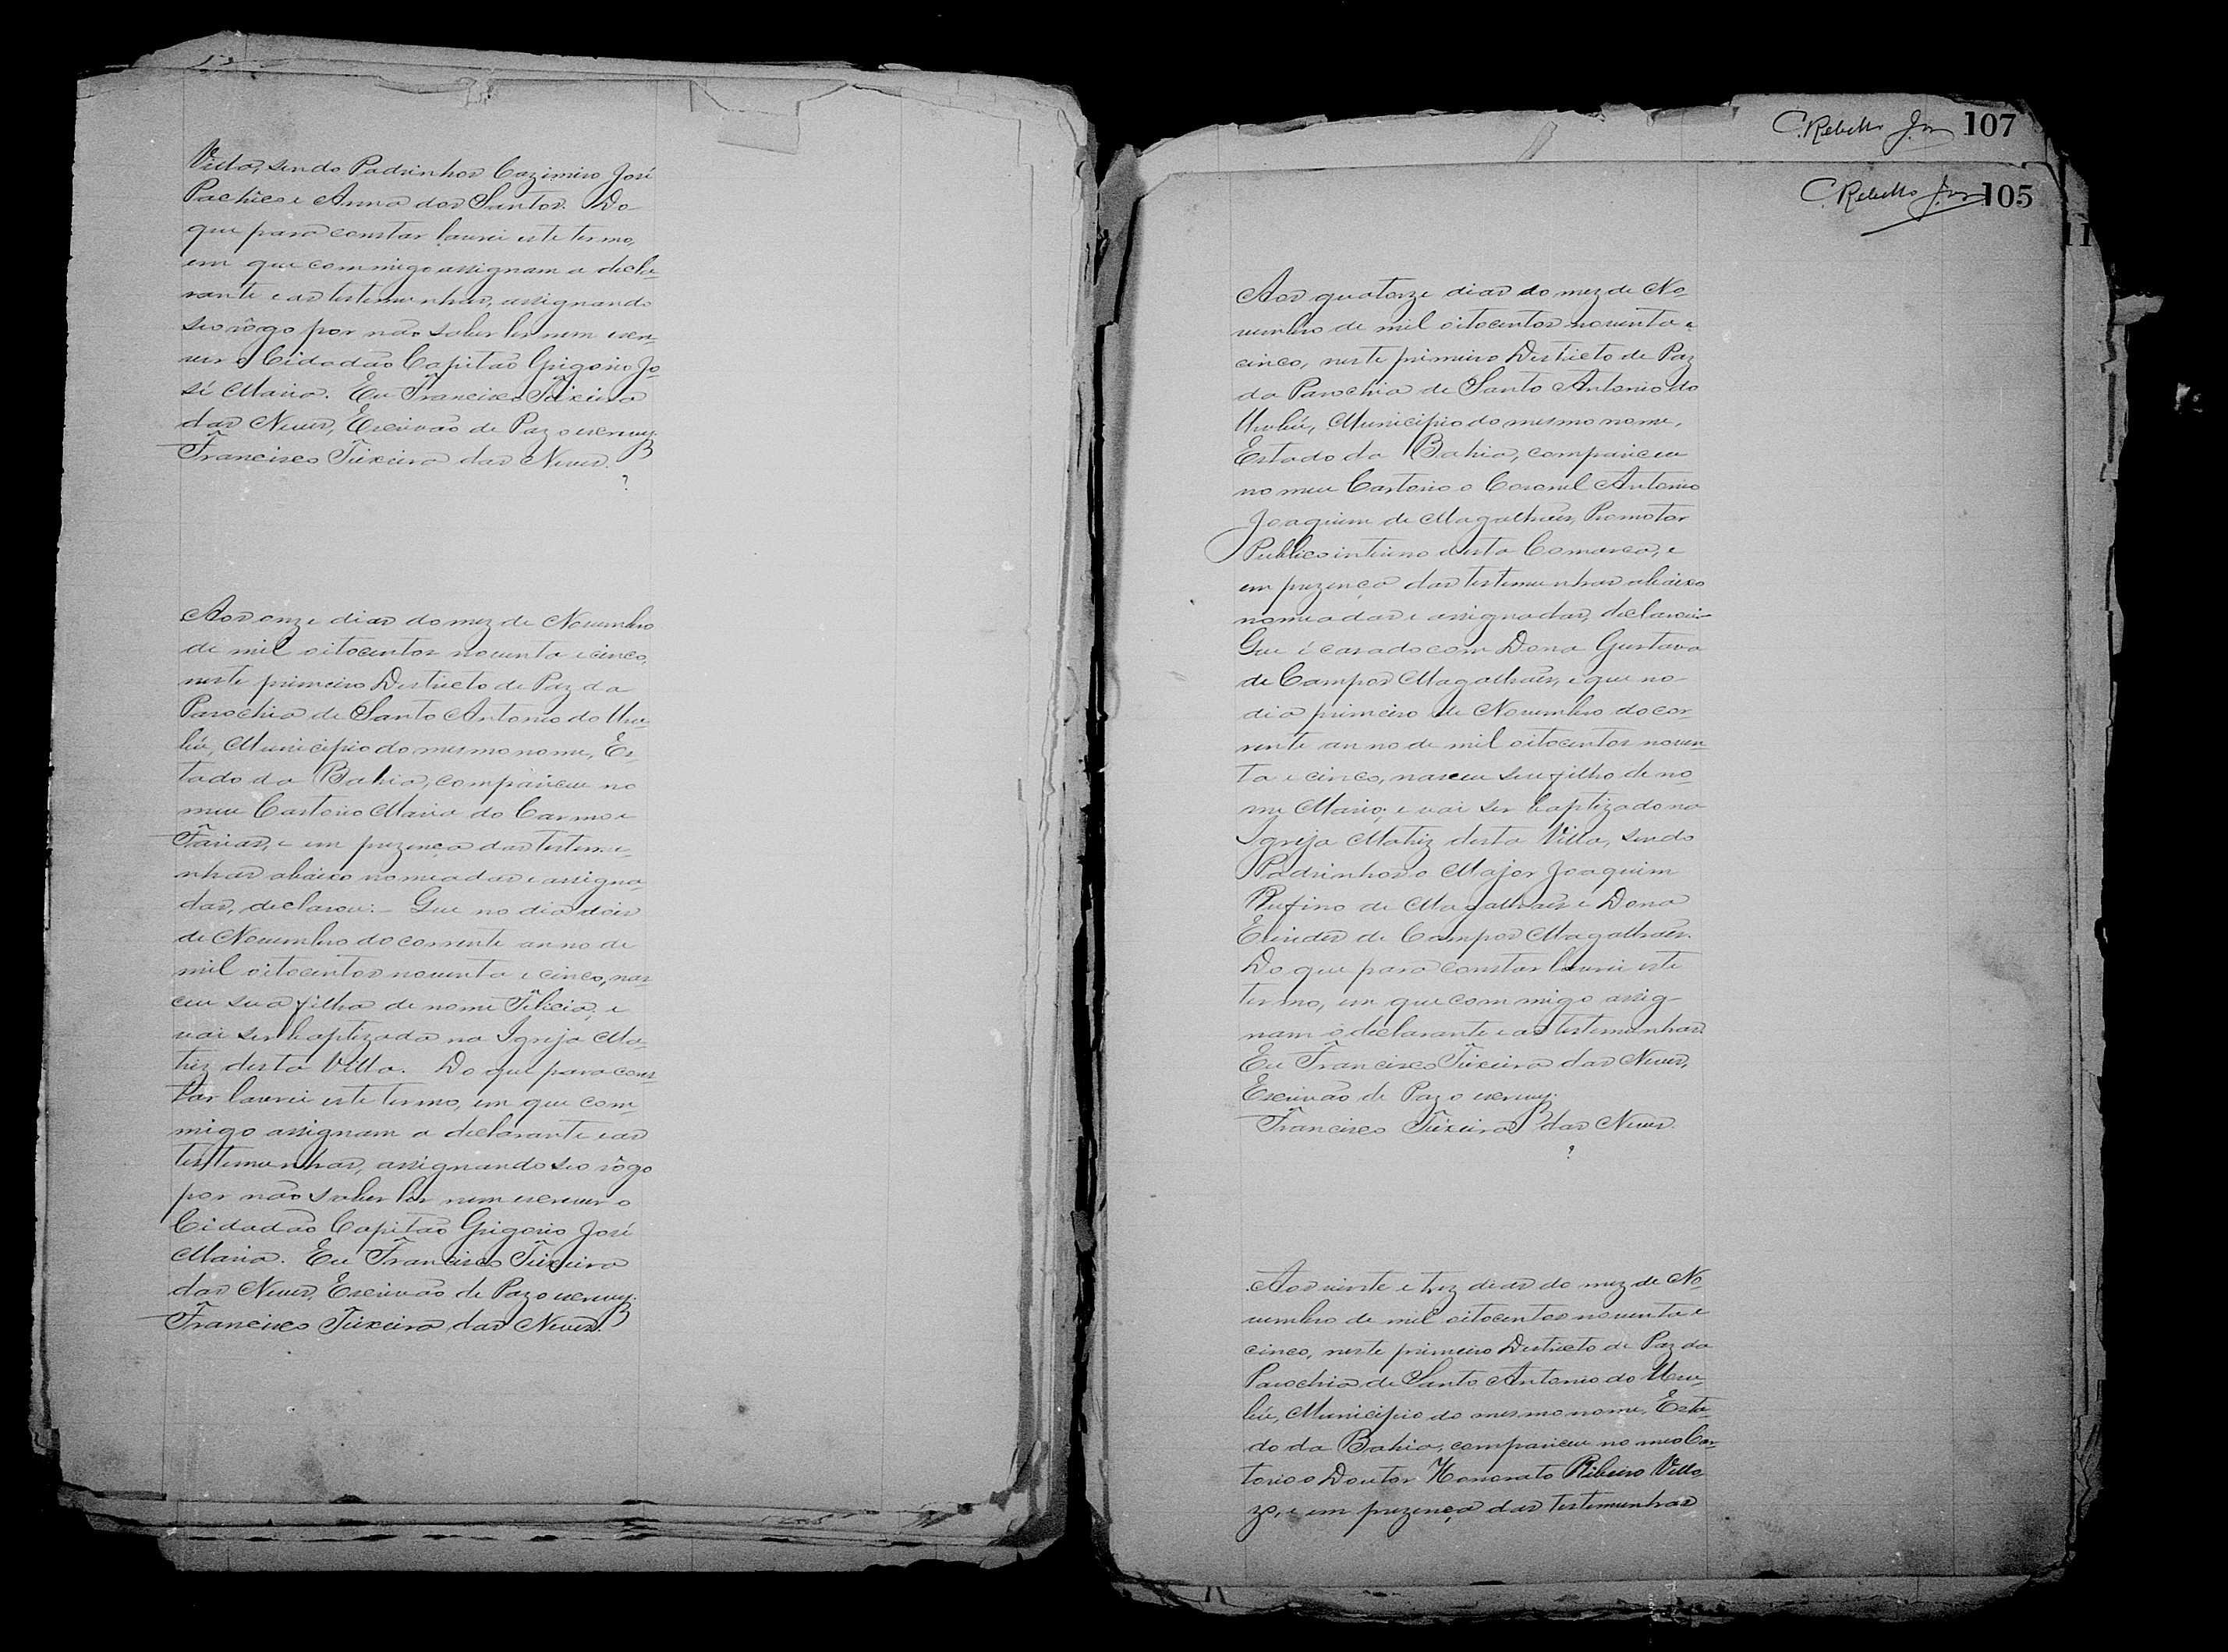 Villa, sendo Padrinhos Cazimiro José
Pachêco e Anna dos Santos. Do
que para constar lavrei este termo,
em que commigo assignam a decla-
rante e as testemunhas, assignando
seo rôgo por não saber ler nem escre-
ver o Cidadão Capitão Grigorio Jo-
sé Maria. Eu Francisco Teixeira
das Neves, Escrivão de Paz o escrevy.
Francisco Teixeira das Neves.
Aos onze dias do mez de Novembro
de mil oitocentos noventa e cinco,
neste primeiro Destricto de Paz da
Parochia de Santo Antonio do Uru-
bú, Municipio do mesmo nome, Es-
tado da Bahia, compareceu no
meu Cartorio Maria do Carmo e
Farias, e em prezença das testemu-
nhas abaixo nomeadas e assigna-
das, declarou:- Que no dia dois
de Novembro do corrente anno de
mil oitocentos noventa e cinco, nas
ceu sua filha de nome Felicia, e
vai ser baptizada na Igreja Ma-
triz desta Villa. Do que para cons-
tar lavrei este termo, em que com-
migo assignam a declarante e as
testemunhas, assignando seo rôgo
por não saber ler nem escrever o
Cidadão Capitão Grigorio José
Maria. Eu Francisco Teixeira
das Neves, Escrivão de Paz o escrevy.
Francisco Teixeira das Neves.
C. Rebello Jor 107
C. Rebello Jor 105
Aos quatorze dias do mez de No-
vembro de mil oitocentos noventa e
cinco, neste primeiro Destricto de Paz
da Parochia de Santo Antonio do
Urubú, Municipio do mesmo nome,
Estado da Bahia, compareceu
no meu Cartorio o Coronel Antonio
Joaquim de Magalhães, Promotor
Publico interino desta Comarca, e
em prezença das testemunhas abaixo
nomeadas e assignadas, declarou-
Que é casado com Dona Gustava
de Campos Magalhães, e que no
dia primeiro de Novembro do cor-
rente anno de mil oitocentos noven-
ta e cinco, nasceu seu filho de no-
me Mario, e vai ser baptizado na
Igreja Matriz desta Villa, sendo
Padrinhos o Major Joaquim
Rufino de Magalhães e Dona
de Campos Magalhães.
Do que para constar lavrei este
termo, em que commigo assig-
nam o declarante e as testemunhas
Eu Francisco Teixeira das Neves,
Escrivão de Paz o escrevy.
Francisco Teixeira das Neves.
Aos vinte e trez dias do mez de No-
vembro de mil oitocentos noventa e
cinco, neste primeiro Destricto de Paz da
Parochia de Santo Antonio do Uru-
bú, Municipio do mesmo nome, Esta-
do da Bahia, compareceu no meo Car-
torio o Doutor Honorato Ribeiro Vello
zo, e em prezença das testemunhas